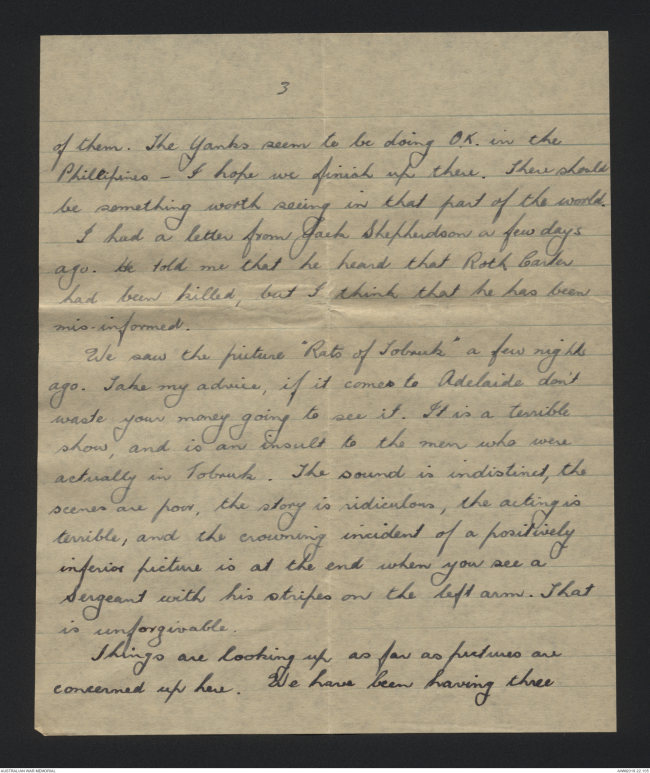 3
of them. The Yanks seem to be doing OK. in the
Phillipines - I hope we finish up there. There should
be something worth seeing in that part of the world.
I had a letter from Jack Shepherdson a few days
ago. He told me that he heard that Roth Carter
had been killed, but I think that he has been
mis-informed.
We saw the picture "Rats of Tobruk" a few nights
ago. Take my advice, if it comes to Adelaide don't
waste your money going to see it. It is a terrible
show, and is an insult to the men who were
actually in Tobruk. The sound is indistinct, the
scenes are poor, the story is ridiculous, the acting is
terrible, and the crowning incident of a positively
inferior picture is at the end when you see a
sergeant with his stripes on the left arm. That
is unforgivable.
Things are looking up as far as pictures are
concerned up here. We have been having three
AUSTRALIAN WAR MEMORIAL